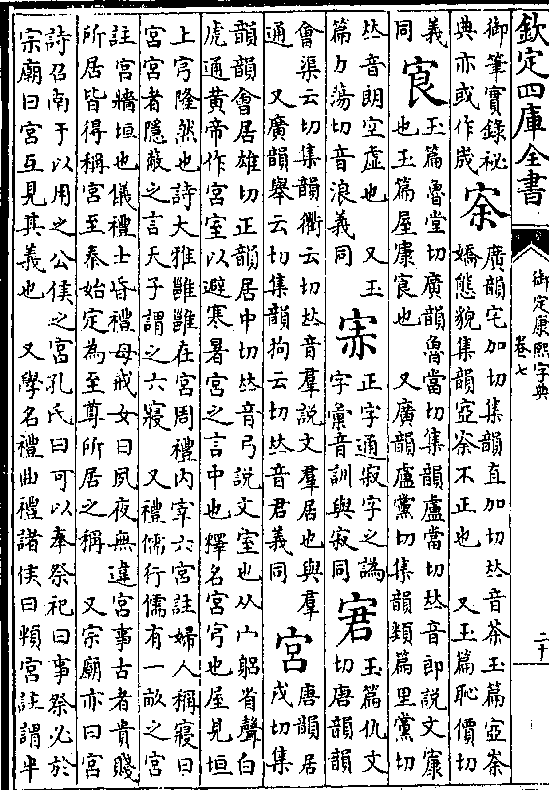 欽定四庫全書
御定康熙字典
卷七
二十
御筆實錄祕
典亦或作宬
㝊
廣韻宅加切集韻直加切𠀤音茶玉篇㝞㝊
嬌態貌集韻㝞㝊不正也 又玉篇恥價切
義
同
㝗
玉篇魯堂切廣韻魯當切集韻盧當切𠀤音郎說文㝩
也玉篇屋康㝗也 又廣韻盧黨切集韻類篇里黨切
𠀤音朗空虛也 又玉
篇力蕩切音浪義同
正字通寂字之譌
字彙音訓與寂同
宭
玉篇仇文
切唐韻韻
會渠云切集韻衢云切𠀤音羣說文羣居也與羣
通 又廣韻舉云切集韻拘云切𠀤音君義同
宮
唐韻居
戎切集
韻韻會居雄切正韻居中切𠀤音弓說文室也从宀躳省聲白
虎通黃帝作宮室以避寒暑宮之言中也釋名宮穹也屋見垣
上穹隆然也詩大雅雝雝在宮周禮內宰六宮註婦人稱寢曰
宮宮者隱蔽之言天子謂之六寢 又禮儒行儒有一畝之宮
註宮牆垣也儀禮士昏禮母戒女曰夙夜無違宮事古者貴賤
所居皆得稱宮至秦始定為至尊所居之稱 又宗廟亦曰宮
詩召南于以用之公侯之宮孔氏曰可以奉祭祀曰事祭必於
宗廟曰宮互見其義也 又學名禮曲禮諸侯曰頖宮註謂半